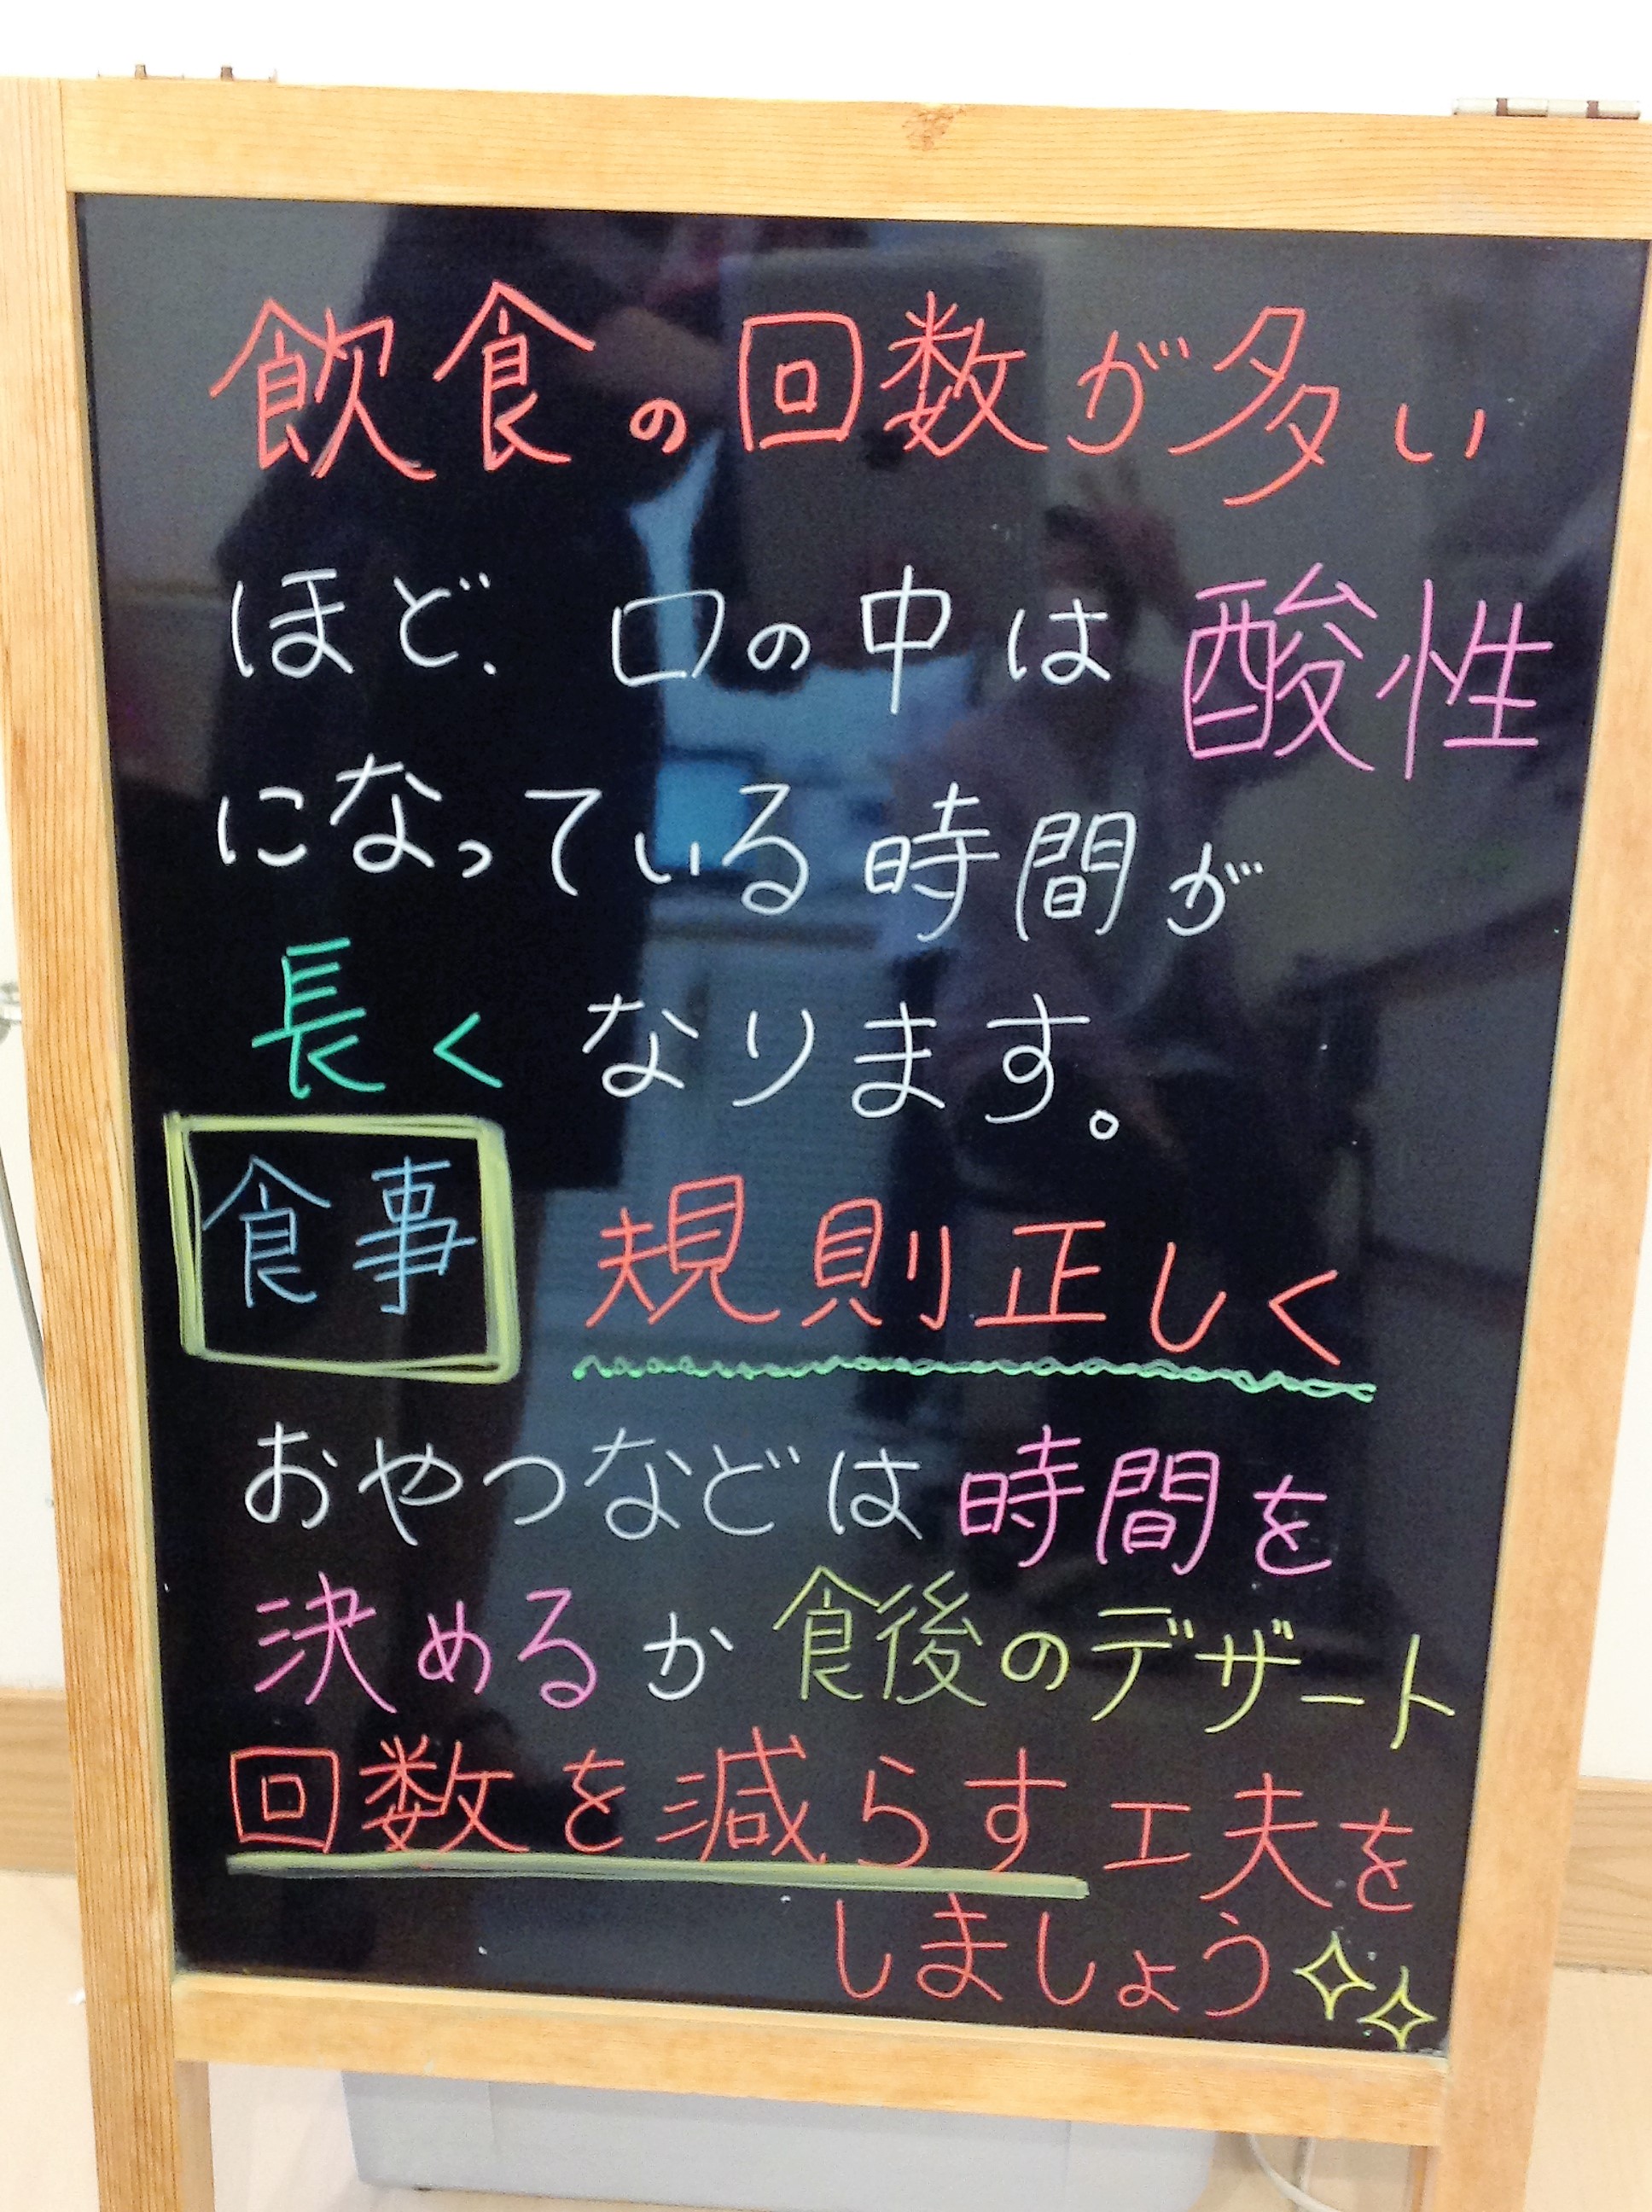 飲食の回数が多い
ほど、口の中は酸性
になっている時間が
長くなります。
食事 規則正しく
おやつなどは時間を
決めるか食後のデザート
回数を減らす工夫を
しましょう